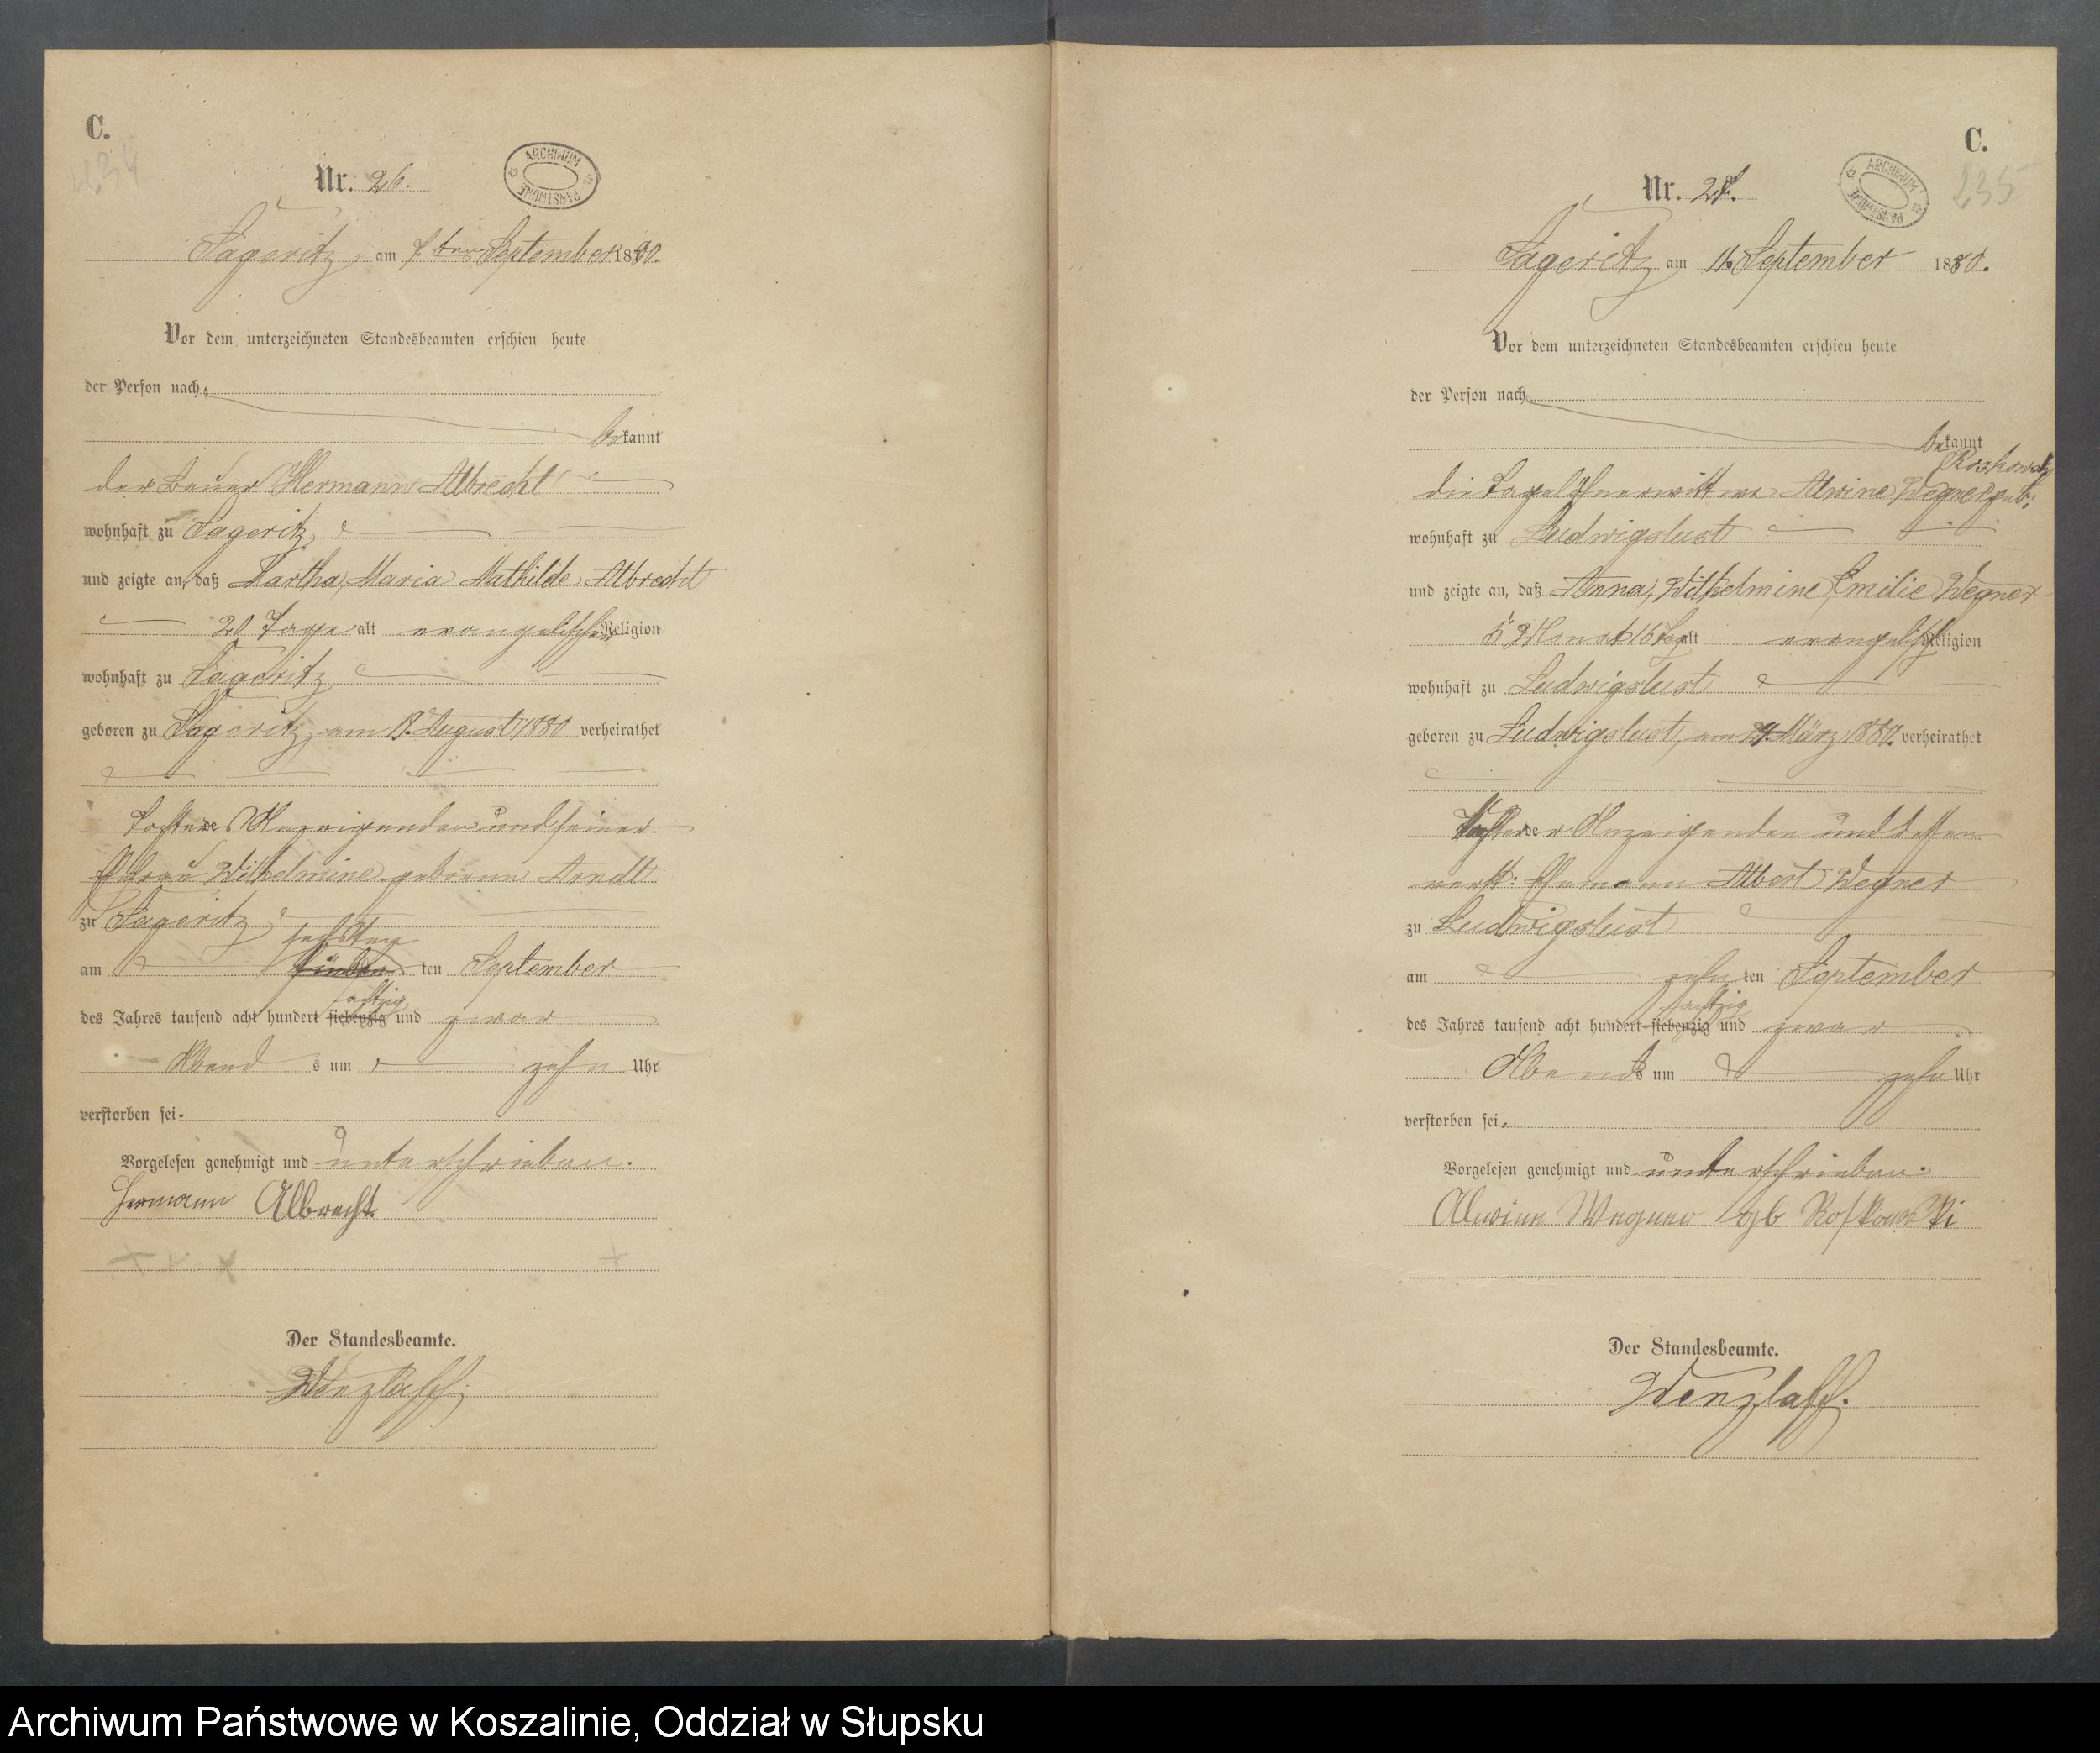 C.
234
Nr. 26.
ARCHIWUM PAŃSTWOWE
Sageritz, am 7ten September 1880.
Vor dem unterzeichneten Standesbeamten erschien heute
der Person nach
bekannt
der Bauer Hermann Albrecht
wohnhaft zu Sageritz,
und zeigte an, daß Martha, Maria Mathilde Albrecht
20 Tage alt evangelischer Religion
wohnhaft zu Sageritz
geboren zu Sageritz, am 18. August 1880 verheirathet
Tochter des Anzeigenden und seiner
Ehefrau Wilhelmine geborene Arndt
zu Sageritz,
sechsten
am fünften ten September
achtzig
des Jahres tausend acht hundert siebenzig und zwar
Abend s um zehn Uhr
verstorben sei.
Vorgelesen genehmigt und unterschrieben.
Hermann Albrecht
Der Standesbeamte.
Wenzlaff.
C.
235
Nr. 27.
ARCHIWUM PAŃSTWOWE
Sageritz am 11. September 1880.
Vor dem unterzeichneten Standesbeamten erschien heute
der Person nach
bekannt
die Tagelöhnerwittwe Alwine Wegner geb:
wohnhaft zu Ludwigslust
und zeigte an, daß Anna, Wilhelmine Emilie Wegner
5 Monat 16 Tage alt evangelisch Religion
wohnhaft zu Ludwigslust
geboren zu Ludwigslust, am März 1880. verheirathet
Tochter der Anzeigenden und dessen
verst: Ehemann Albert Wegner
zu Ludwigslust
am zehn ten September
achtzig
des Jahres tausend acht hundert siebenzig und zwar
Abends um zehn Uhr
verstorben sei.
Vorgelesen genehmigt und unterschrieben.
Alwine Wegner gb Roskowski
Der Standesbeamte.
Wenzlaff.
Archiwum Państwowe w Koszalinie, Oddział w Słupsku